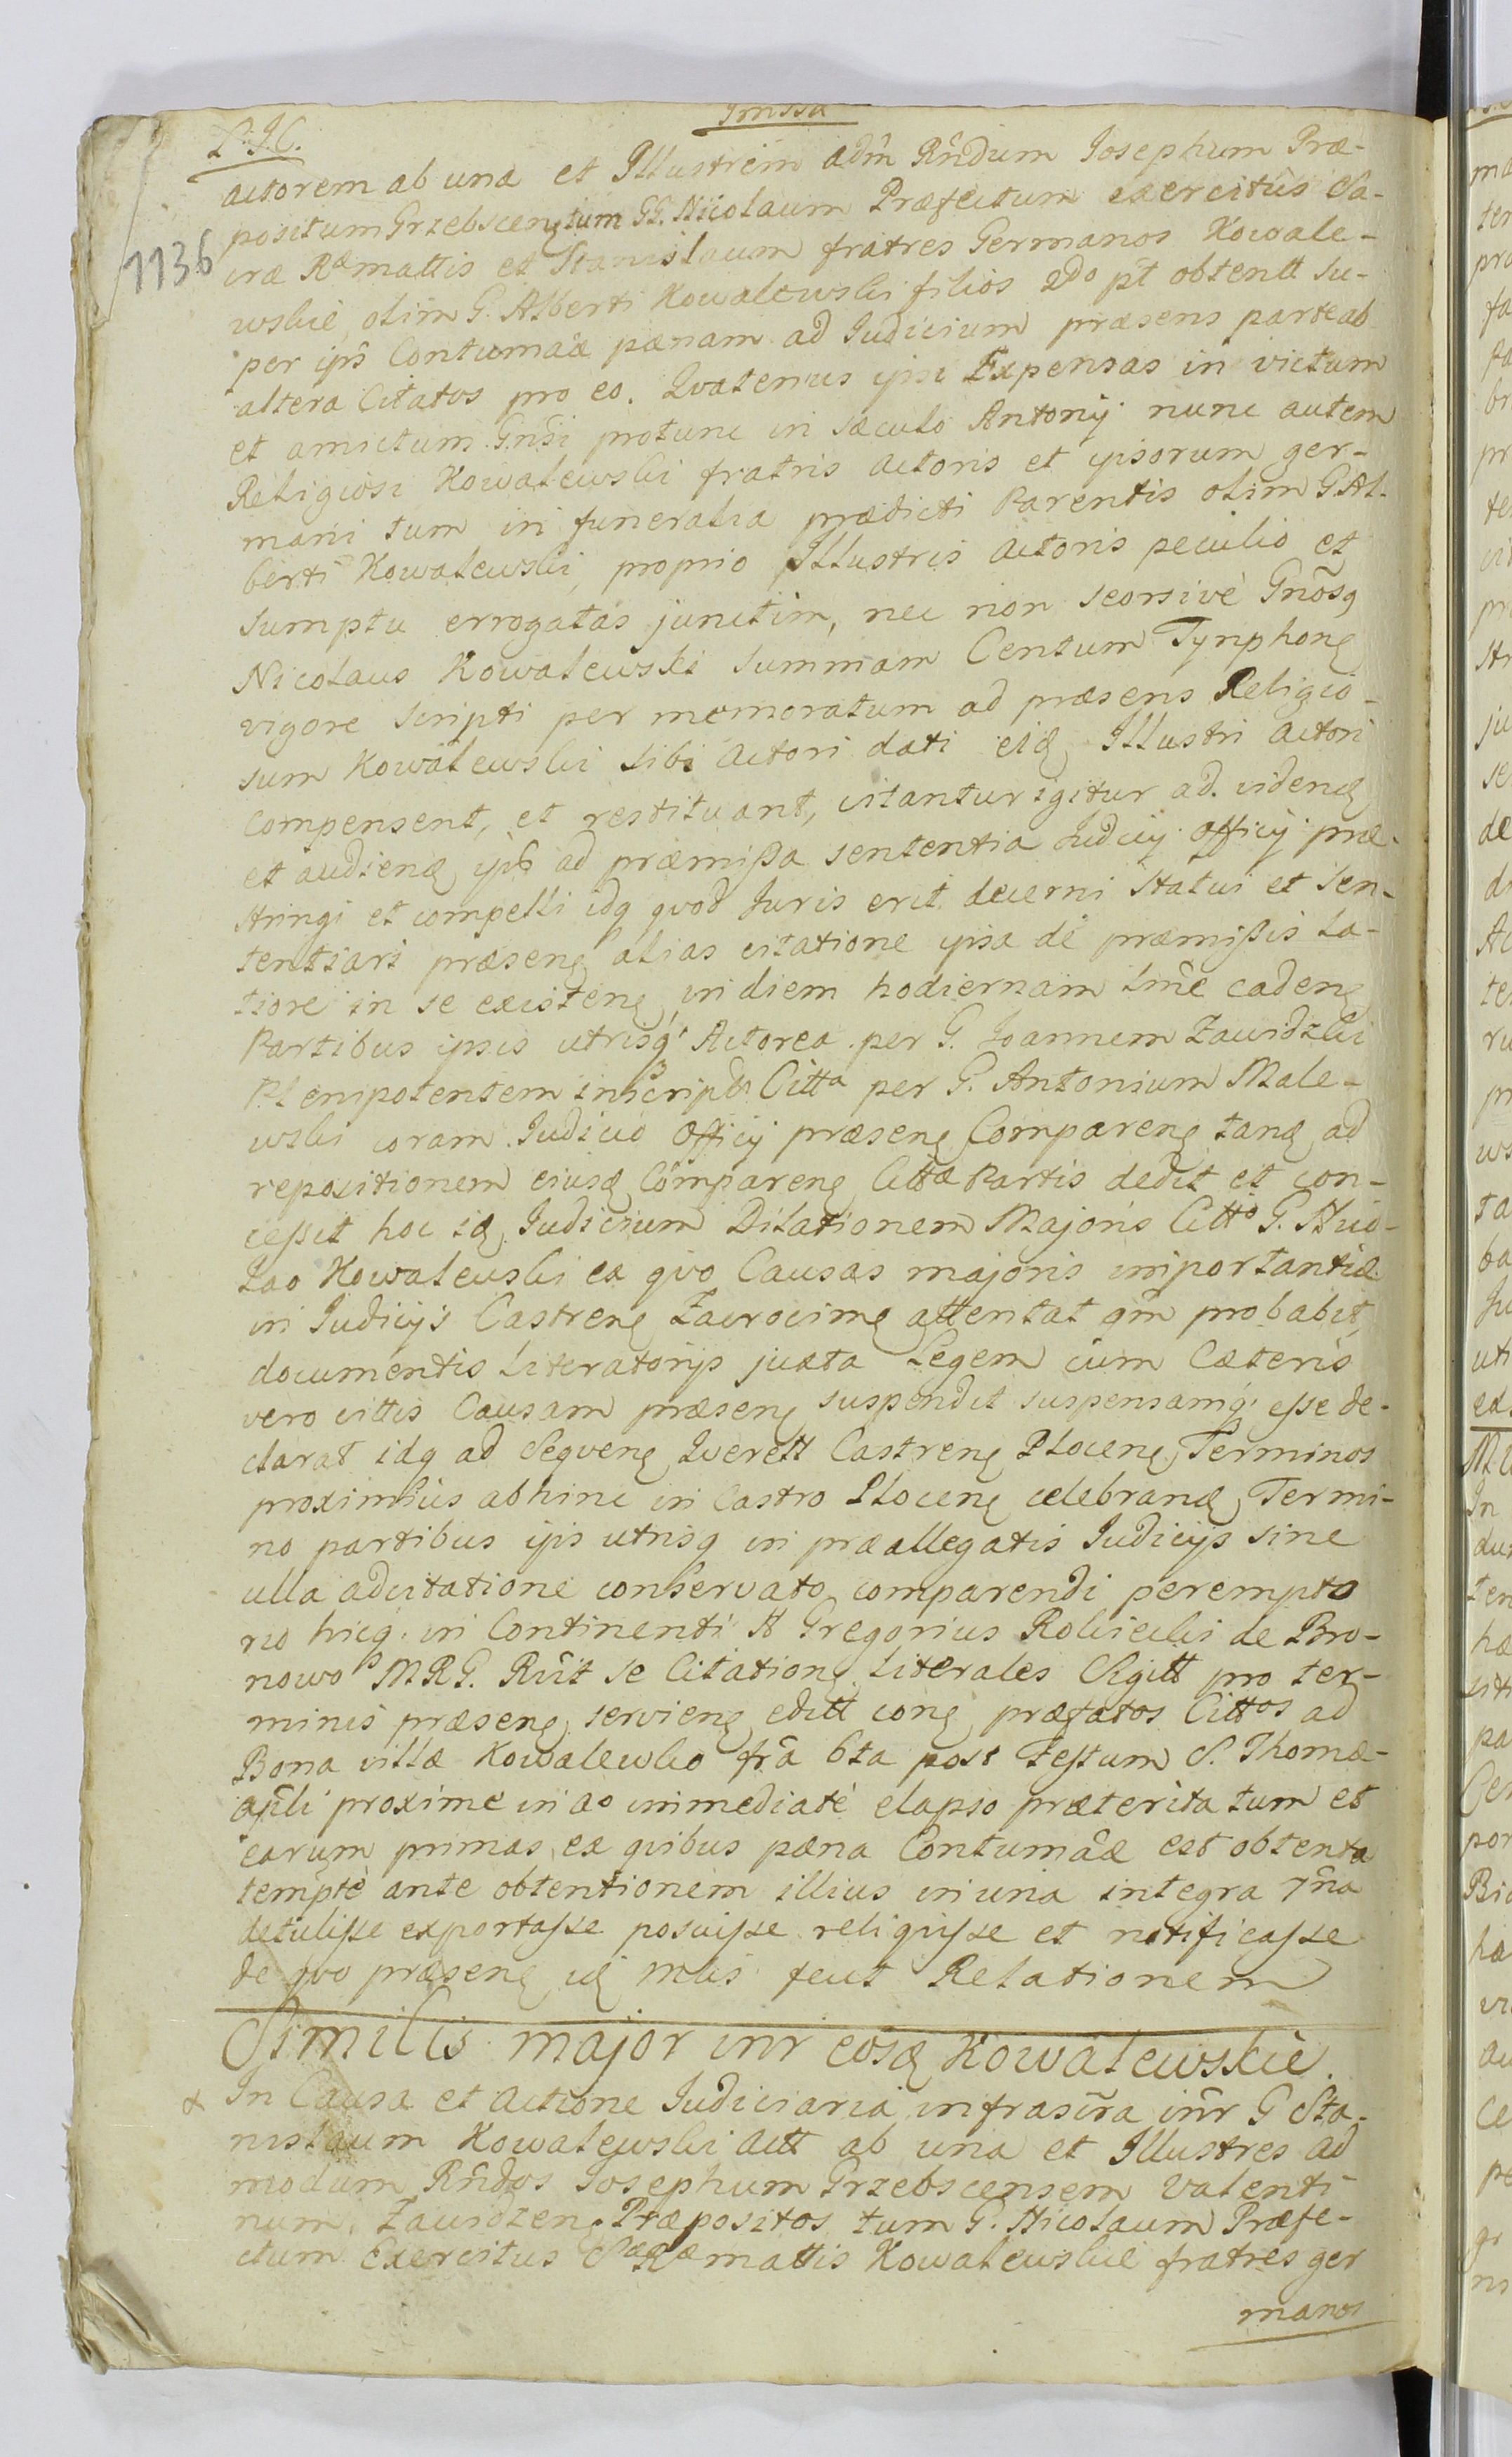 P. J. C.
1136
actorem ab una et Illustrem adm̃ Rñdum Josephum Præ-
positum Grzebscenʒ tum GG. Nicolaum Præfectum exercitûs Sa-
cræ Ræ mattis et Stanislaum fratres Germanos Kowale-
wskie, olim G. Alberti Kowalewski filios 2do pt̃ obtentt su-
per ips̃ Contumãæ pænam ad Judicium præsens parte ab
altera Citatos pro eo. Quatenus ipsi Expensas in victum
et amictum Gñsi protunc in sæculo Antonij nunc autem
Religiosi Kowalewski fratris Actoris et ipsorum ger-
mani tum in funeralia prædicti Parentis olim G. Al-
berti Kowalewski, proprio Illustris Actoris peculio et
sumptu errogatas junctim, nec non seorsivè Gñosq
Nicolaus Kowalewski summam Centum Tynphonʒ
vigore scripti per memoratum ad præsens Religio-
sum Kowalewski sibi Actori dati eidʒ Illustri Actori
compensent, et restituant, citantur igitur ad videndʒ
et audiendʒ ips̃ ad præmissa sententia Judicij officij præ-
stringi et compelli idq quod Juris erit decerni statui et sen-
tentiari præsenʒ alias citatione ipsa de præmissis la-
tiore in se existenʒ, in diem hodiernam tm̃e cadenʒ
Partibus ipsis utrisq Actorea per G. Joannem Zawidzki
Plenipotentem inscript̃ Citta per G. Antonium Male-
wski coram Judicio officij præsenʒ Comparenʒ tandʒ ad
repositionem eiusdʒ Comparenʒ Cittæ Partis dedit et con-
cessit hoc idʒ Judicium Dilationem Majoris Citto G. Nico-
lao Kowalewski ex quo Causas majoris importantiæ
in Judicijs Castrenʒ Zacrocimʒ attentat qm̃ probabit,
documentis literatorijs juxta Legem cum Cæteris
vero cittis Causam præsenʒ suspendit suspensamq esse de-
clarat idq ad Sequenʒ Querett Castrenʒ Plocenʒ Terminos
proximius abhinc in Castro Plocenʒ celebrandʒ Termi-
no partibus ips̃ utrisq in præallegatis Judicijs sine
ulla adcitatione conservato comparendi perempto
rio hicq in Continenti H Gregorius Rokicki de Bro-
nowo MRG. Rñit se Citationʒ Literales Sigitt pro ter-
minis præsenʒ servienʒ editt conʒ præfatos Cittos ad
Bona villæ Kowalewko fr̃a 6ta post Festum S. Thomæ
apl̃i proxime in ao immediatè elapso præterita tum et
earum primas, ex quibus pæna Contumãæ est obtenta
temptè ante obtentionem illius in una integra 7ñna
detulisse exportasse posuisse reliquisse et notificasse
de quo præsenʒ idʒ Mlis fecit Relationem
Similis major inr eosdʒ Kowalewskie.
In Causa et Actione Judiciaria infrascr̃a inr̃ G Sta-
nislaum Kowalewski Actt ab una et Illustres ad
modum Rñdos Josephum Grzebscensem Valenti
num, Zawidzenʒ Præpositos tum G. Nicolaum Præfe-
ctum Exercitus Sæ Ræ mattis Kowalewskie fratres ger
manos